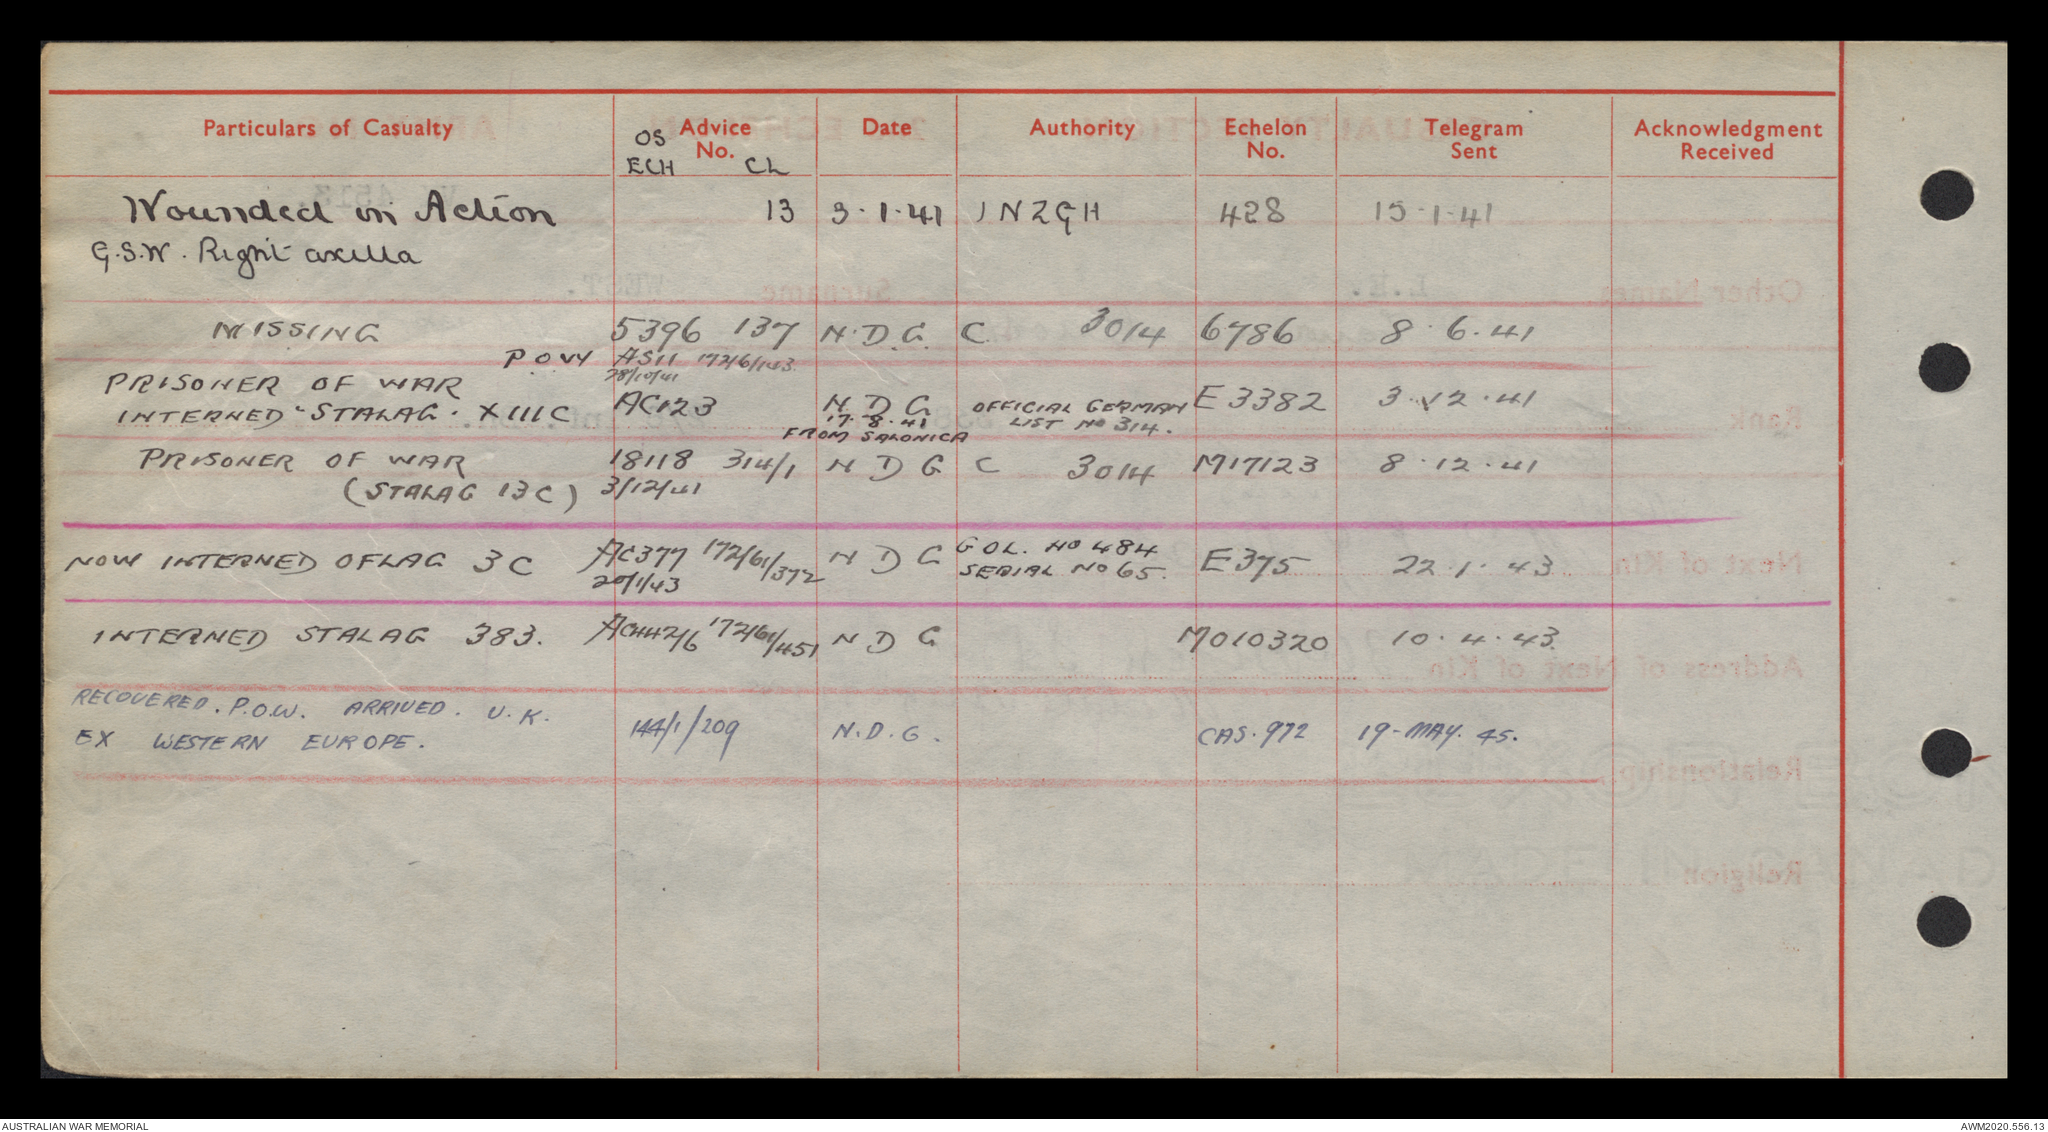 Particulars of Casualty
OS ECH Advice No. CL
Date
Authority
Echelon No.
Telegram Sent
Acknowledgment Received
Wounded in Action 13 3·1·41 1NZGH 428 15·1·41
G.S.W. Right axilla
MISSING 5396 137 N.D.G. C 3014 6786 8·6·41
P.O.W AS11 172/6/143
28/10/41
PRISONER OF WAR AC123 N D G OFFICIAL GERMAN E3382 3·12·41
INTERNED STALAG. XIIIC 17·8·41 LIST No 314.
FROM SALONICA
PRISONER OF WAR 18118 314/1 N D G C 3014 M17123 8·12·41
(STALAG 13C) 3/12/41
NOW INTERNED OFLAG 3C AC377 172/61/372 N D G GOL. No 484 E375 22·1·43
20/1/43 SERIAL No 65.
INTERNED STALAG 383. AC442/6 172/61/451 N D G M010320 10·4·43.
RECOVERED. P.O.W. ARRIVED. U.K.
EX WESTERN EUROPE. 144/1/209 N.D.G. CAS.972 19-MAY.45.
AUSTRALIAN WAR MEMORIAL
AWM2020.556.13